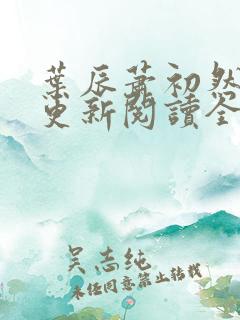 葉辰蕭初然
更新閱讀全
吴志纯
未经同意禁止转载